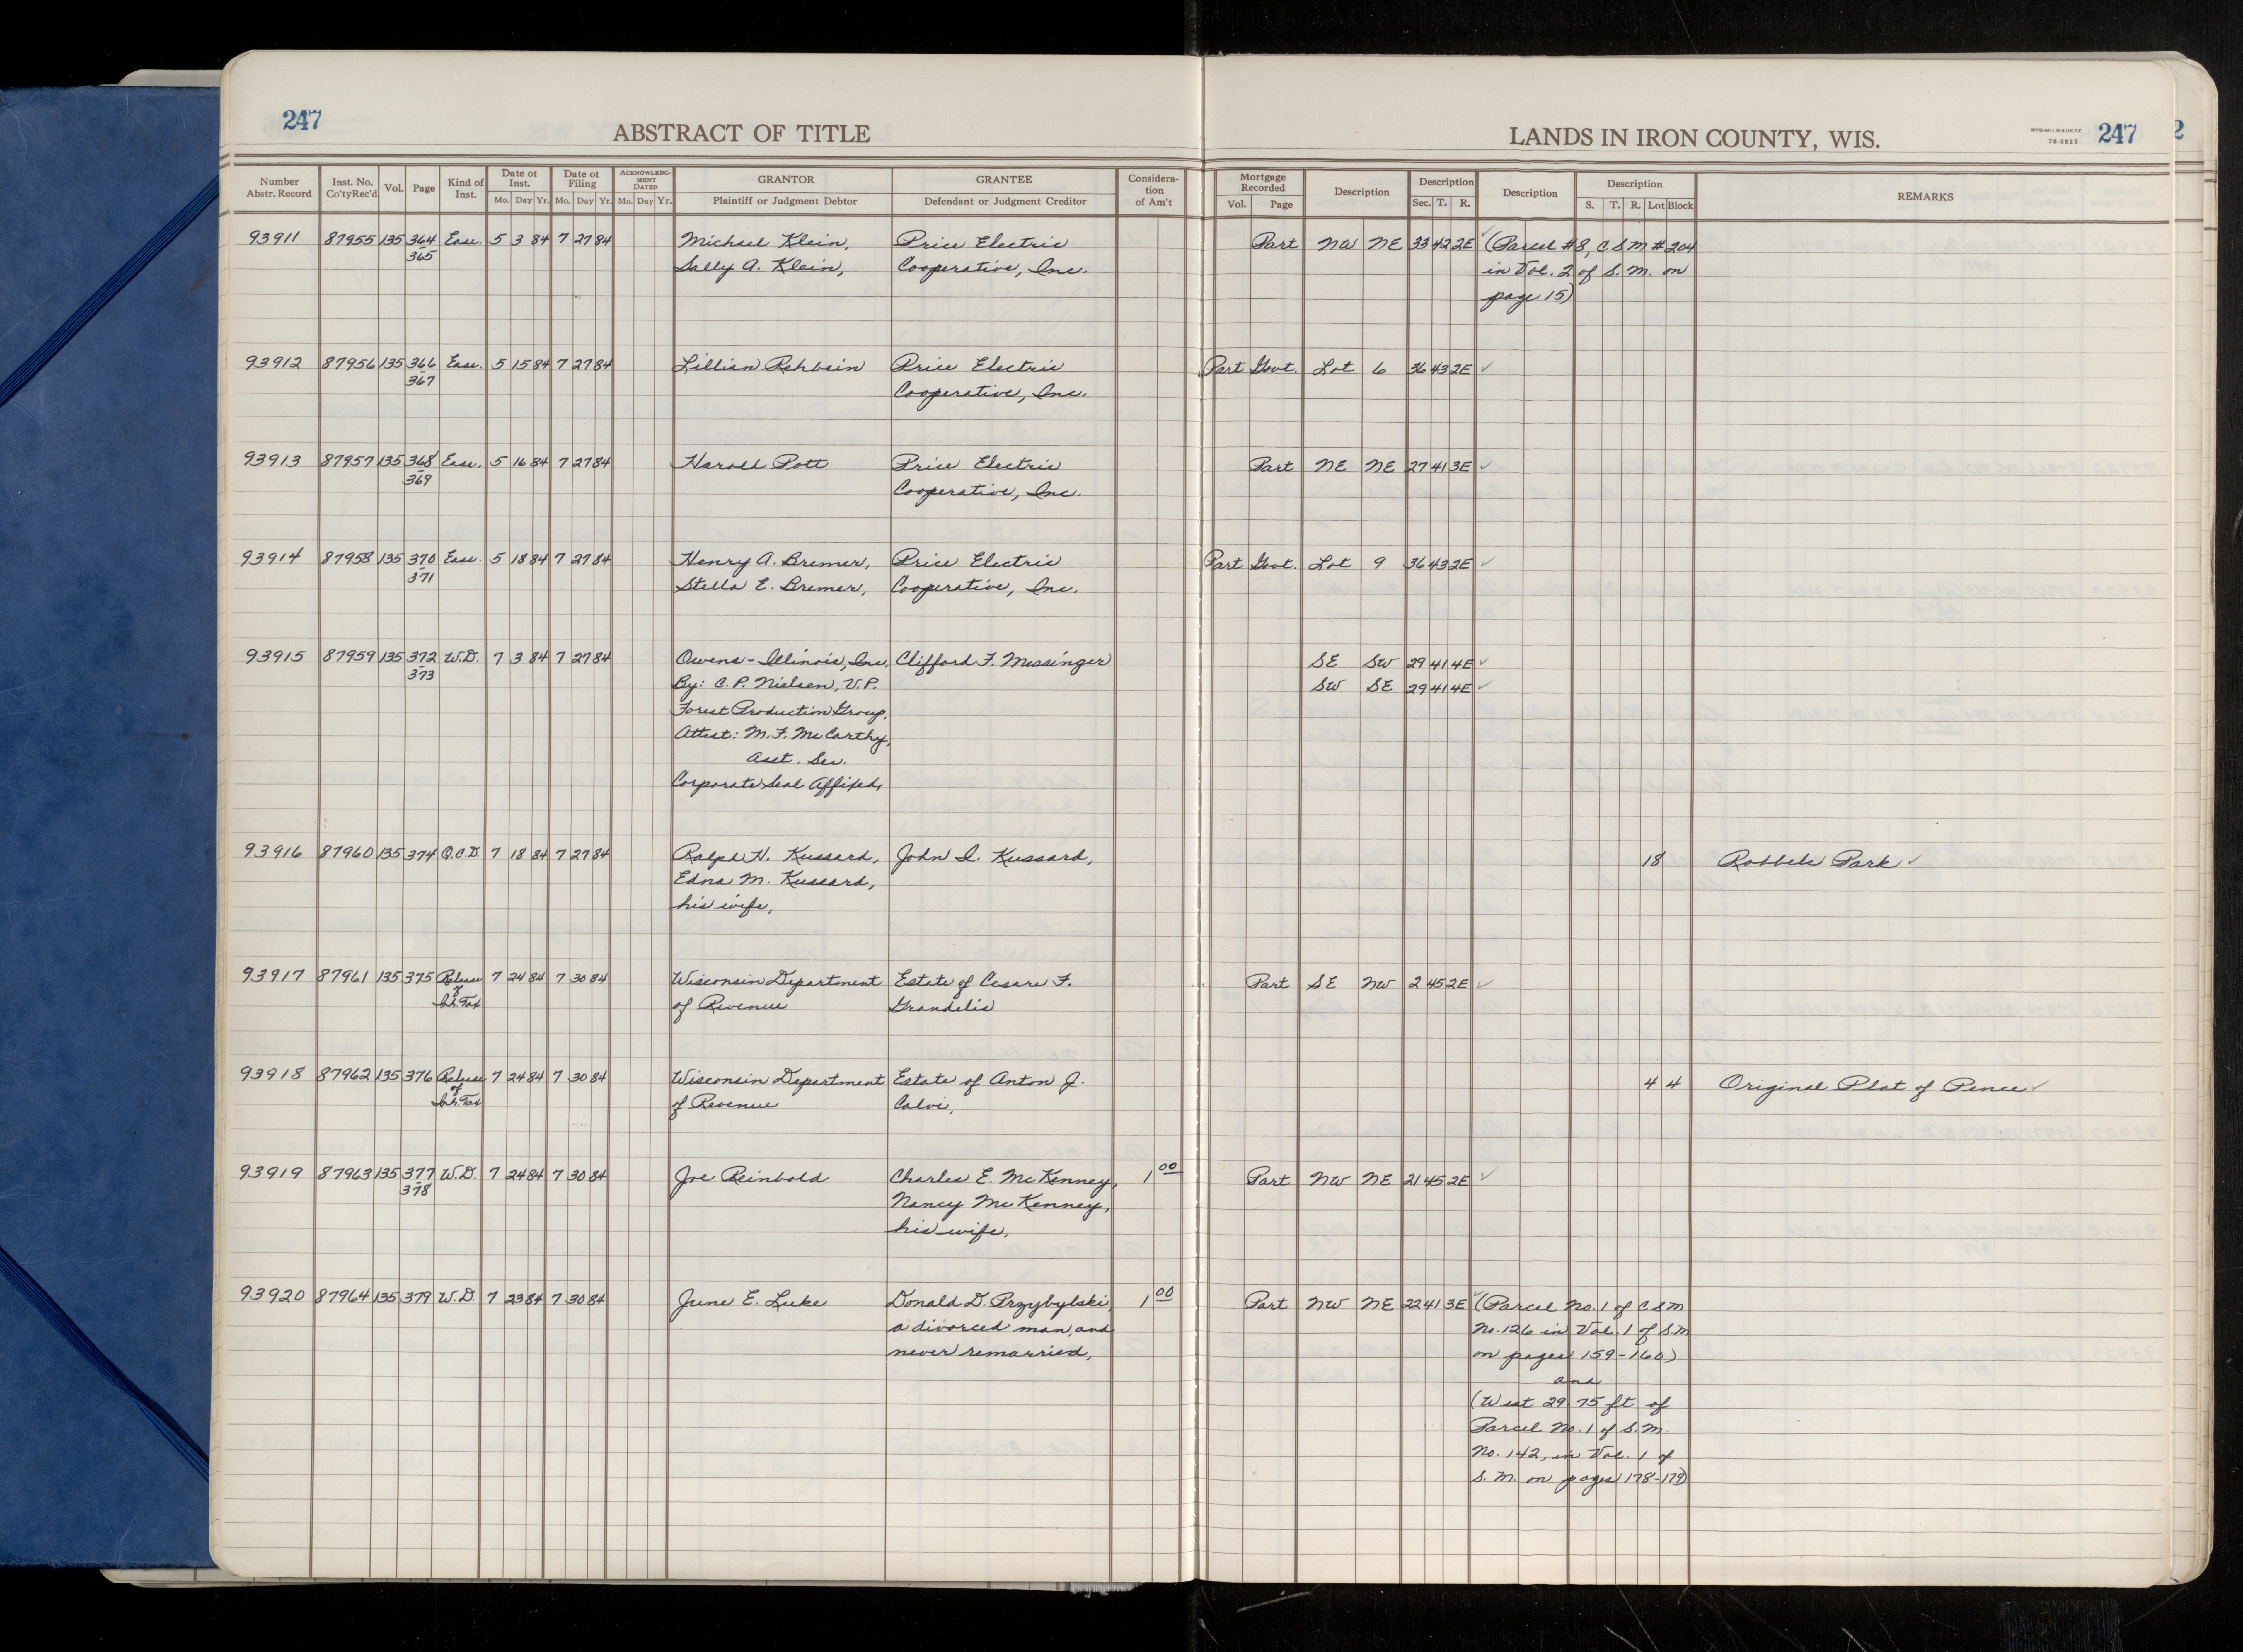 247
ABSTRACT OF TITLE
LANDS IN IRON COUNTY, WIS.
WPB-MILWAUKEE
78-3525
247
2
Number Abstr. Record Inst. No. Co'tyRec'd Vol. Page Kind of Inst. Date of Inst. Mo. Day Yr. Date of Filing Mo. Day Yr. ACKNOWLEDGMENT DATED Mo. Day Yr. GRANTOR Plaintiff or Judgment Debtor GRANTEE Defendant or Judgment Creditor Consideration of Am't Mortgage Recorded Vol. Page Description Description Sec. T. R. Description Description S. T. R. Lot Block REMARKS
93911 87955 135 364 Ease. 5 3 84 7 27 84 Michael Klein, Price Electric Part NW NE 33 42 2E ✓ (Parcel #8, C.S.M #204
365 Sally A. Klein, Cooperative, Inc. in Vol. 2 of S.M. on
page 15)
93912 87956 135 366 Ease. 5 15 84 7 27 84 Lillian Rehbein Price Electric Part Govt. Lot 6 36 43 2E ✓
367 Cooperative, Inc.
93913 87957 135 368 Ease. 5 16 84 7 27 84 Harold Pott Price Electric Part NE NE 27 41 3E ✓
369 Cooperative, Inc.
93914 87958 135 370 Ease. 5 18 84 7 27 84 Henry A. Bremer, Price Electric Part Govt. Lot 9 36 43 2E ✓
371 Stella E. Bremer, Cooperative, Inc.
93915 87959 135 372 W.D. 7 3 84 7 27 84 Owens-Illinois, Inc. Clifford F. Messinger SE SW 29 41 4E ✓
373 By: C.P. Nielsen, V.P. SW SE 29 41 4E ✓
Forest Production Group,
Attest: M.F. McCarthy,
Asst. Sec.
Corporate Seal Affixed,
93916 87960 135 374 Q.C.D. 7 18 84 7 27 84 Ralph H. Kussard, John I. Kussard, 18 Robbels Park ✓
Edna M. Kussard,
his wife,
93917 87961 135 375 Release 7 24 84 7 30 84 Wisconsin Department Estate of Cesare F. Part SE NW 2 45 2E ✓
of
Inh. Tax of Revenue Grandelis
93918 87962 135 376 Release 7 24 84 7 30 84 Wisconsin Department Estate of Anton J. 4 4 Original Plat of Pence ✓
of
Inh. Tax of Revenue Calvi,
93919 87963 135 377 W.D. 7 24 84 7 30 84 Joe Reinbold Charles E. McKenney, 1 00 Part NW NE 21 45 2E ✓
378 Nancy McKenney,
his wife,
93920 87964 135 379 W.D. 7 23 84 7 30 84 June E. Luke Donald D. Przybylski, 1 00 Part NW NE 22 41 3E ✓ (Parcel No. 1 of C.S.M
a divorced man, and No. 126 in Vol. 1 of S.M
never remarried, on pages 159-160)
and
(West 29.75 ft of
Parcel No. 1 of S.M.
No. 142, in Vol. 1 of
S.M. on pages 178-179)